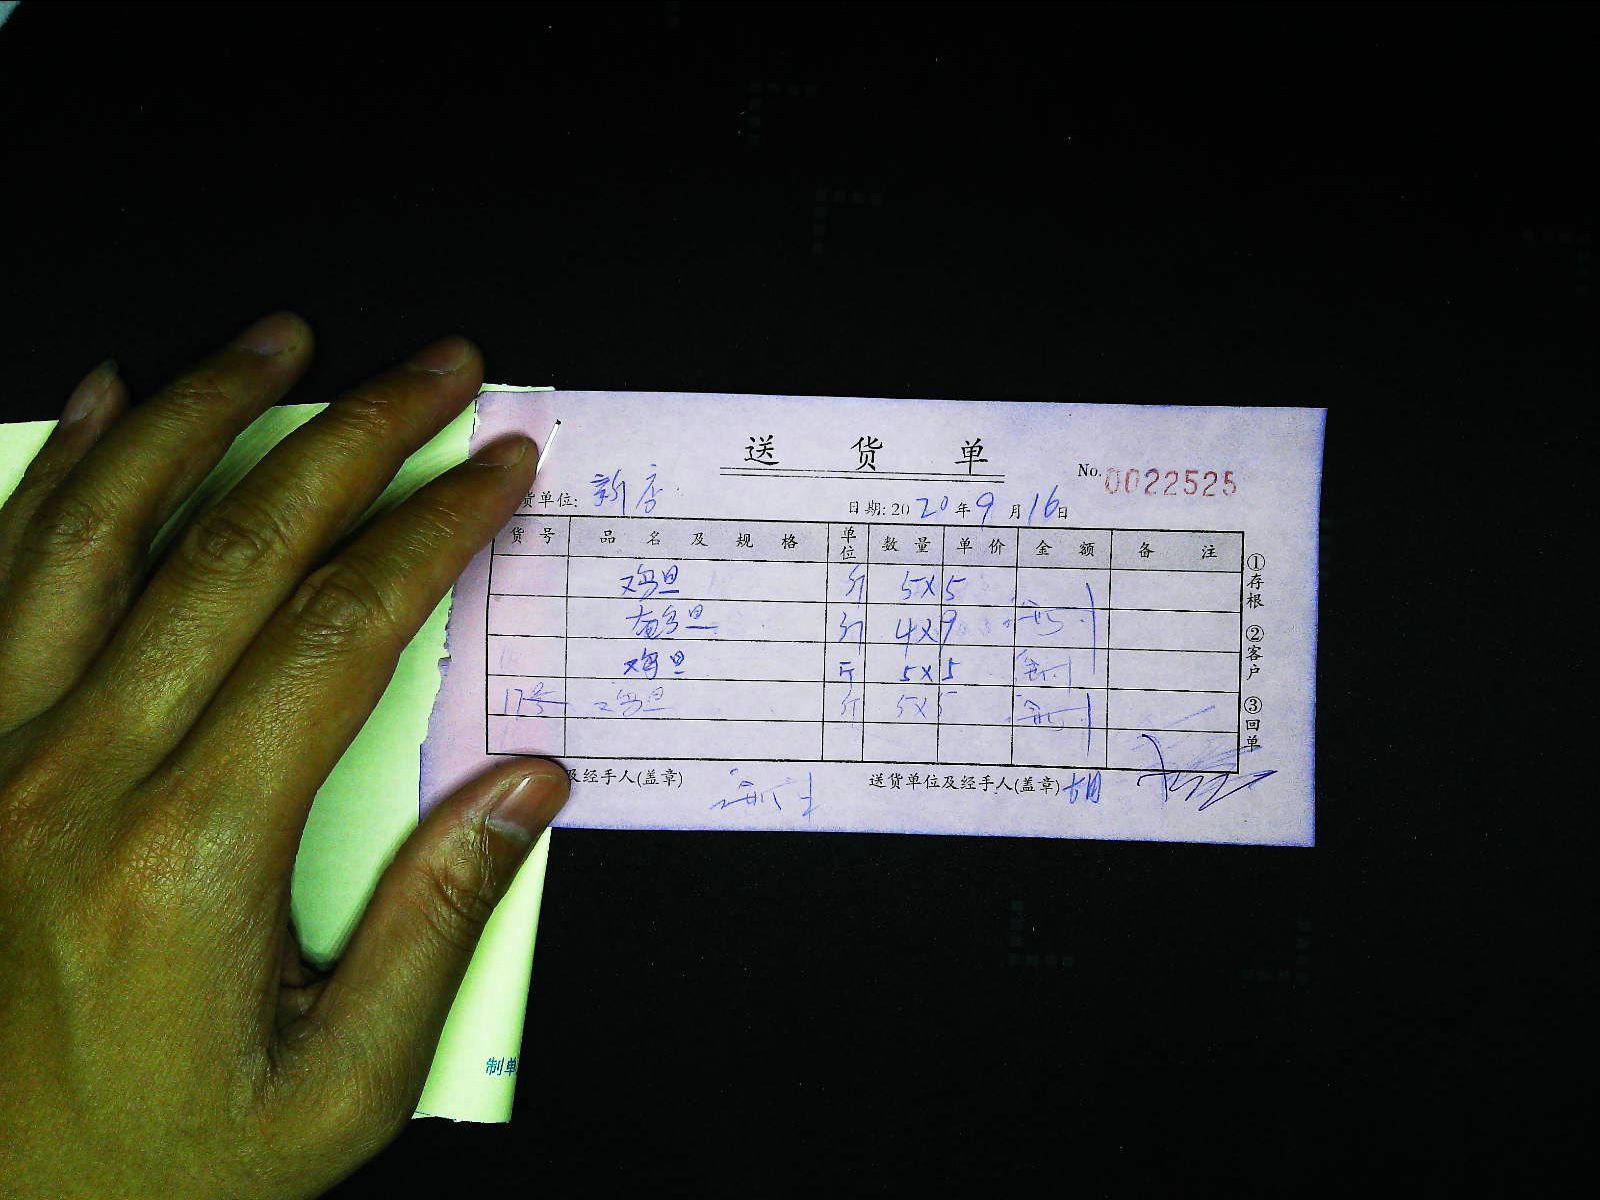 送 货 单
No. 0022525
货单位: 新店 日期: 2020年9月16日
货号 品名及规格 单位 数量 单价 金额 备注
鸡旦 斤 5×5
斤 4×9
鸡旦 斤 5×5
17号 鸡旦 斤 5×5
及经手人(盖章) 送货单位及经手人(盖章) 胡
①存根 ②客户 ③回单
制单